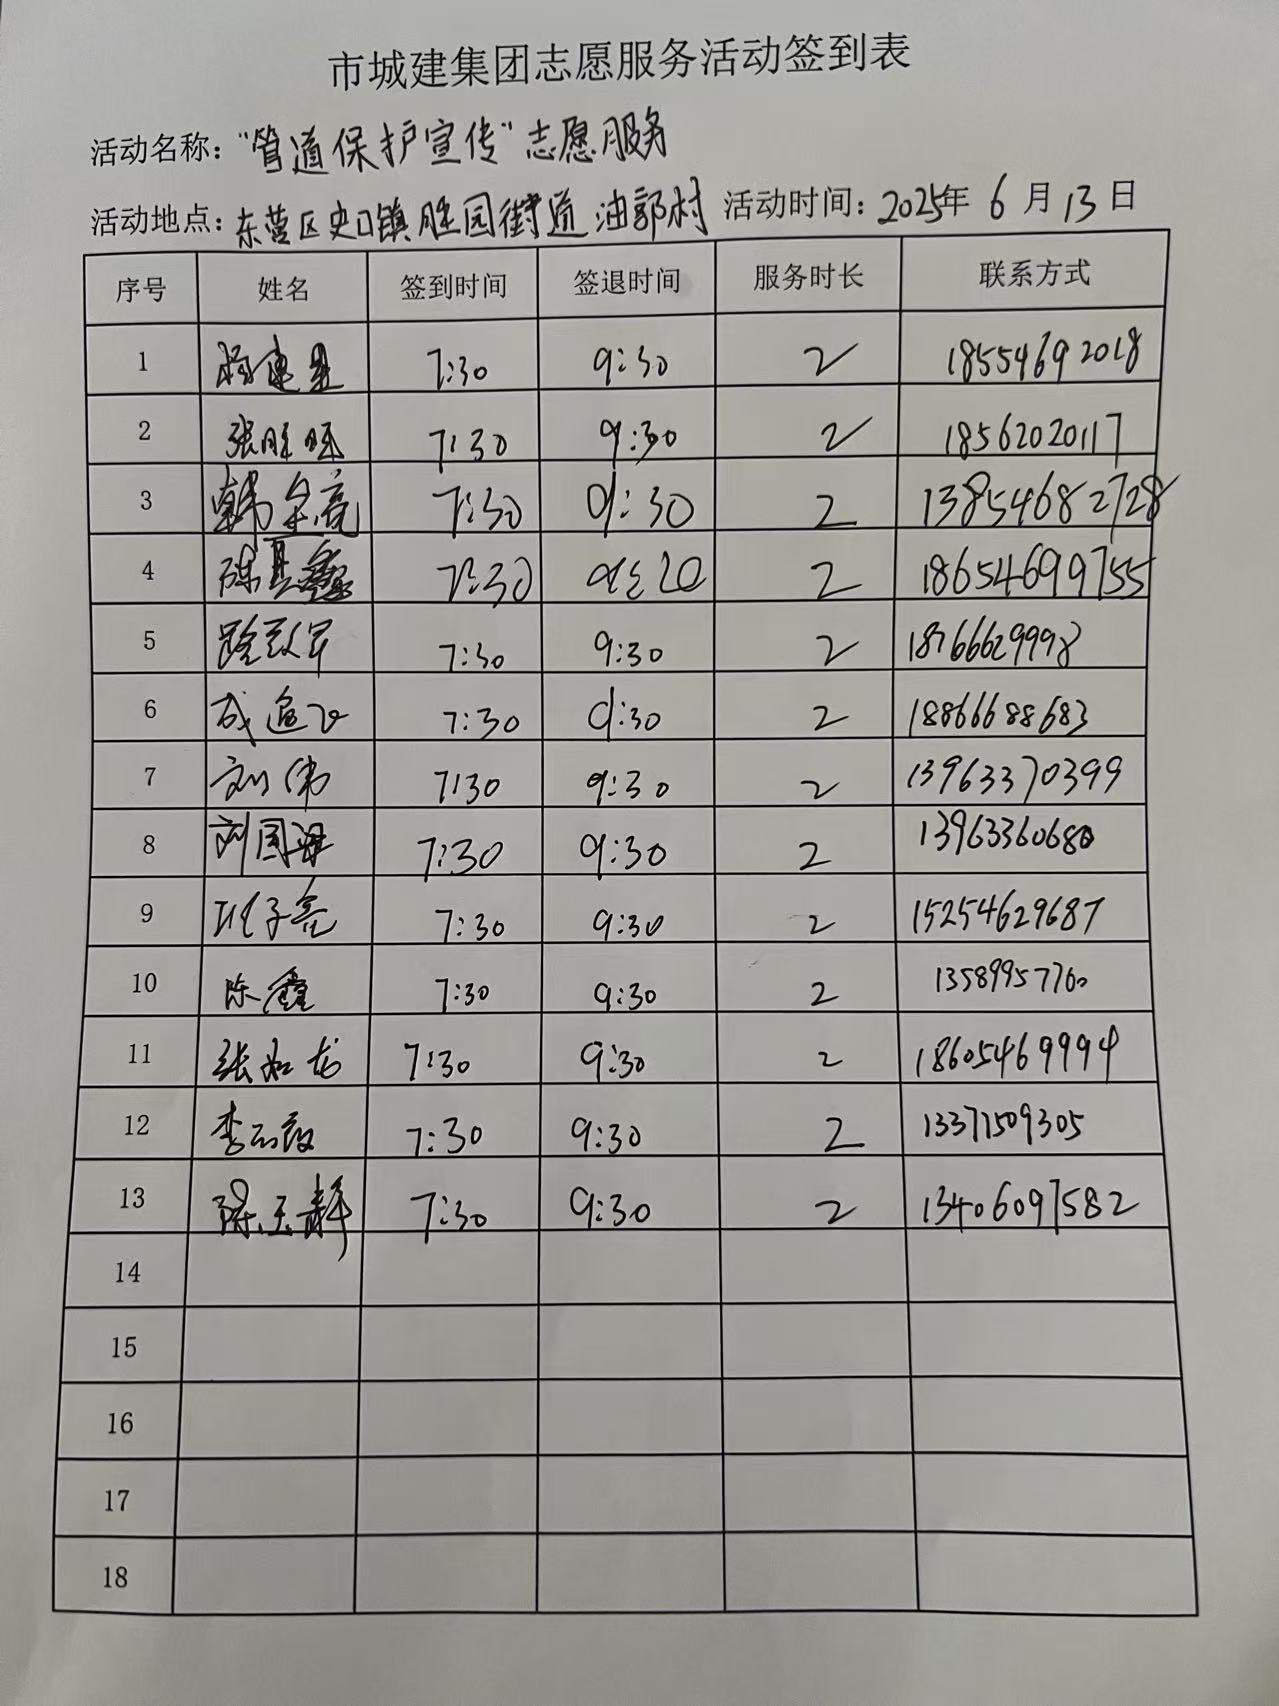 市城建集团志愿服务活动签到表
活动名称："管道保护宣传"志愿服务
活动地点：东营区史口镇胜园街道油郭村 活动时间：2025年6月13日
序号 姓名 签到时间 签退时间 服务时长 联系方式
1 7:30 9:30 2 18554692018
2 张胜旺 7:30 9:30 2 18562020117
3 韩金亮 7:30 9:30 2 13854682728
4 7:30 2 18654699755
5 路致军 7:30 9:30 2 18766629998
6 成追飞 7:30 9:30 2 18866688683
7 刘伟 7:30 9:30 2 13963370399
8 刘国梁 7:30 9:30 2 13963360680
9 子亮 7:30 9:30 2 15254629687
10 陈鑫 7:30 9:30 2 13589957760
11 张如龙 7:30 9:30 2 18605469994
12 李 7:30 9:30 2 13371509305
13 陈玉静 7:30 9:30 2 13406097582
14
15
16
17
18